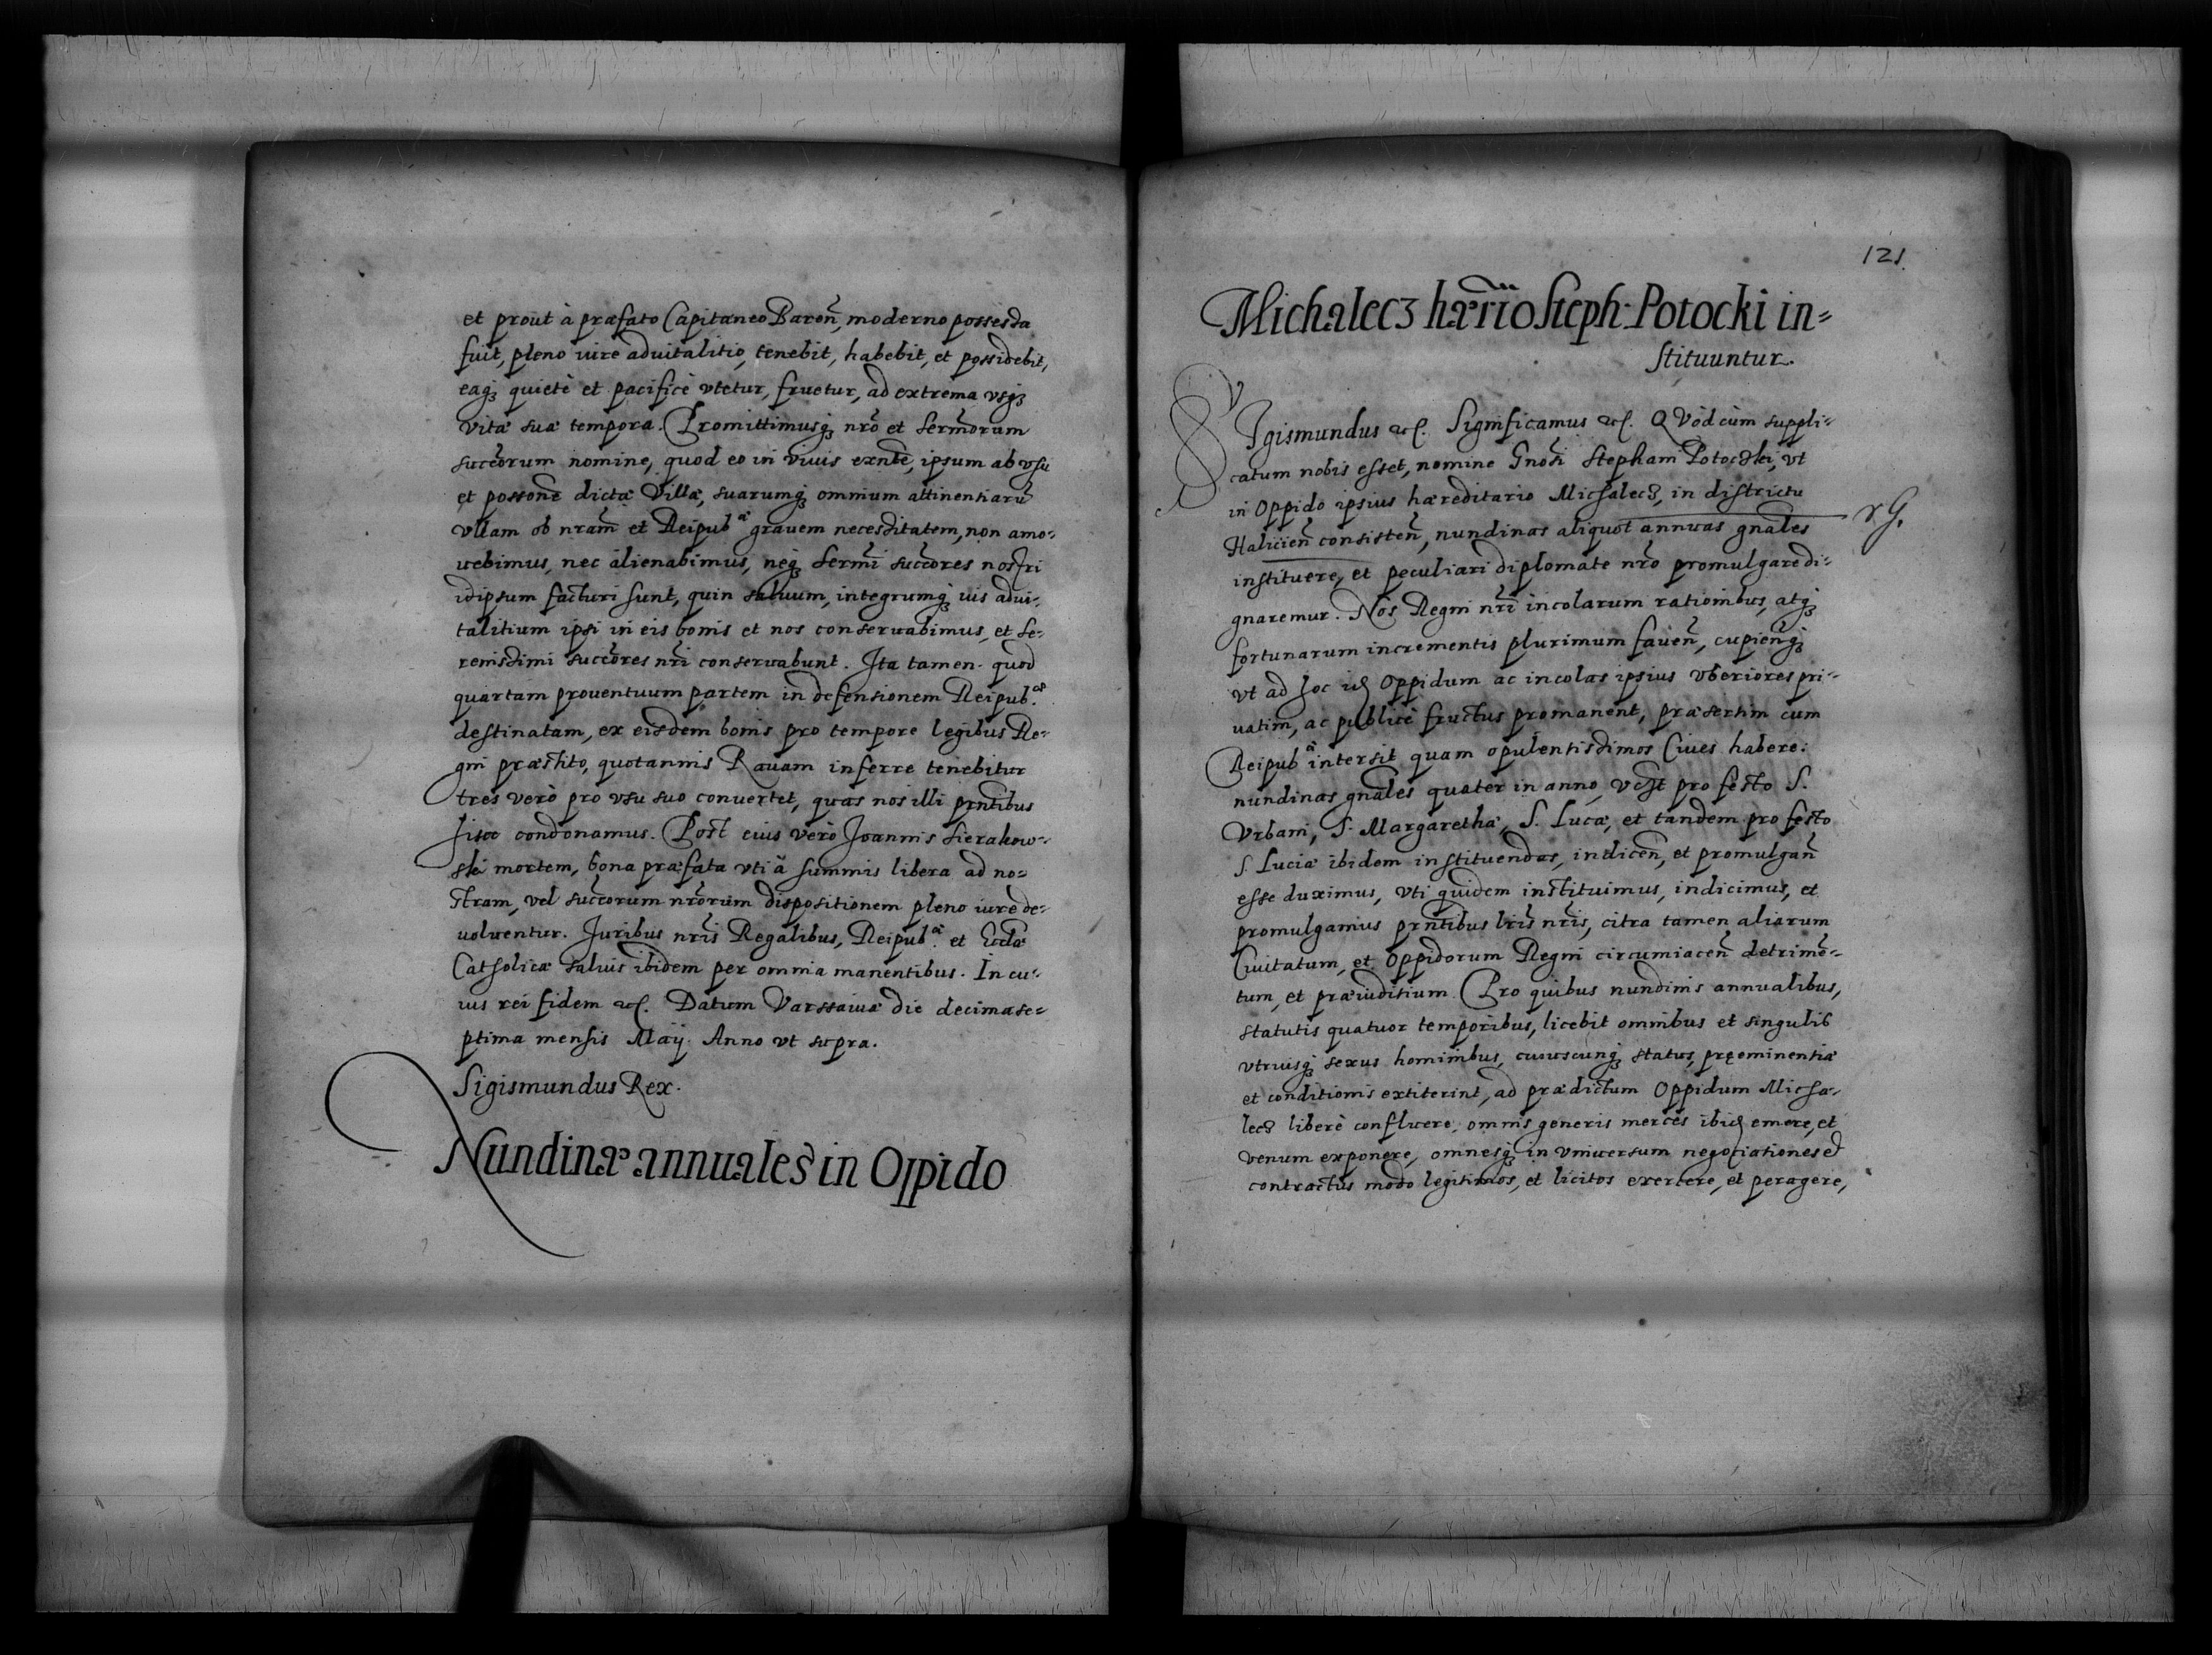 et prout à præfato Capitaneo Baroñ, moderno possessa
fuit, pleno iure aduitalitio, tenebit, habebit, et possidebit,
eaq́ꝫ quietè et pacificè vtetur, fruetur, ad extrema vsq́ꝫ
vitæ suæ tempora. Promittimusq́ꝫ nrõ et Sermõrum
succõrum nomine, quod eo in viuis exnte, ipsum ab vsu
et possone dictæ Villæ, suarumq́ꝫ omnium attinentiarũ
vllam ob nram̃ et Reipubᶜᵃᵉ grauem necessitatem, non amo⸗
uebimus, nec alienabimus, neq́ꝫ Sermĩ succõres nostri
idipsum facturi sunt, quin saluum, integrumq́ꝫ ius adui⸗
talitium ipsi in eis bonis et nos conseruabimus, et Se⸗
renissimi succõres nrĩ conseruabunt. Ita tamen quod
quartam prouentuum partem in defensionem Reipub.ᶜᵃᵉ
destinatam, ex eisdem bonis pro tempore legibus Re⸗
gni præstito, quotannis Rauam inferre tenebitur
tres verò pro vsu suo conuertet, quas nos illi prntibus
hisce condonamus. Post eius verò Joannis Sierakow⸗
ski mortem, bona præfata vti à summis libera ad no⸗
stram, vel succõrum nrõrum dispositionem pleno iure de⸗
uoluentur. Juribus nrĩs Regalibus, Reipub.ᶜᵃᵉ et Ecclæ
Catholicæ saluis ibidem per omnia manentibus. In cu⸗
ius rei fidem etc. Datum Varssauiæ die decimase⸗
ptima mensis Maij. Anno vt supra.
Sigismundus Rex.
Nundinæ annuales in Oppido
121.
Michalecz hærrio Steph: Potocki in⸗
stituuntur.
SIgismundus etc. Significamus etc. QVòd cùm suppli⸗
catum nobis esset, nomine Gnosi Stephani Potoczki, vt
in Oppido ipsius hæreditario Michalecz, in districtu
Halicieñ consisteñ, nundinas aliquot annuas gnales
instituere, et peculiari diplomate nrõ promulgare di⸗
gnaremur. Nos Regni nrĩ incolarum rationibus, atq́ꝫ
fortunarum incrementis plurimum faueñ, cupieñq́ꝫ
vt ad hoc id Oppidum ac incolas ipsius vberiores pri⸗
uatim, ac publicè fructus promanent, præsertim cum
Reipubᶜᵃᵉ intersit quam opulentissimos Ciues habere:
nundinas gnales quater in anno, vcꝫt pro festo S.
Vrbani, S. Margarethæ, S. Lucæ, et tandem pro festo
S. Luciæ ibidem instituendas, indiceñ, et promulgañ
esse duximus, vti quidem instituimus, indicimus, et
promulgamus prntibus lrĩs nrĩs, citra tamen aliarum
Ciuitatum, et Oppidorum Regni circumiaceñ detrimẽ⸗
tum, et præiuditium. Pro quibus nundinis annualibus,
statutis quatuor temporibus, licebit omnibus et singulis
vtriusq́ꝫ sexus hominibus, cuiuscunq́ꝫ status, pręeminentiæ
et conditionis extiterint, ad prædictum Oppidum Micha⸗
lecz liberè confluere, omnis generis merces ibid emere, et
venum exponere, omnesq́ꝫ in vniuersum negociationes et
contractus modo legitimos, et licitos exercere, et peragere,